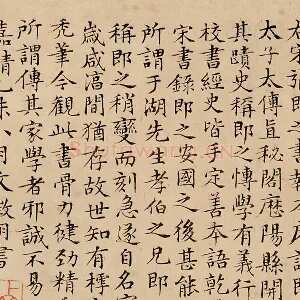 右宋張即之
太子太傅直秘閣歷陽縣開
其蹟史稱即之博學有義行
校書經史皆手定善本語乾
宋書錄即之安國之後甚能
所謂于湖先生孝伯之兄即
稱即之稍變而刻急遂自名
歲咸淳間猶存故世知有樗
禿筆今觀此書骨力健勁精
所謂傳其家學者邪誠不易
嘉靖